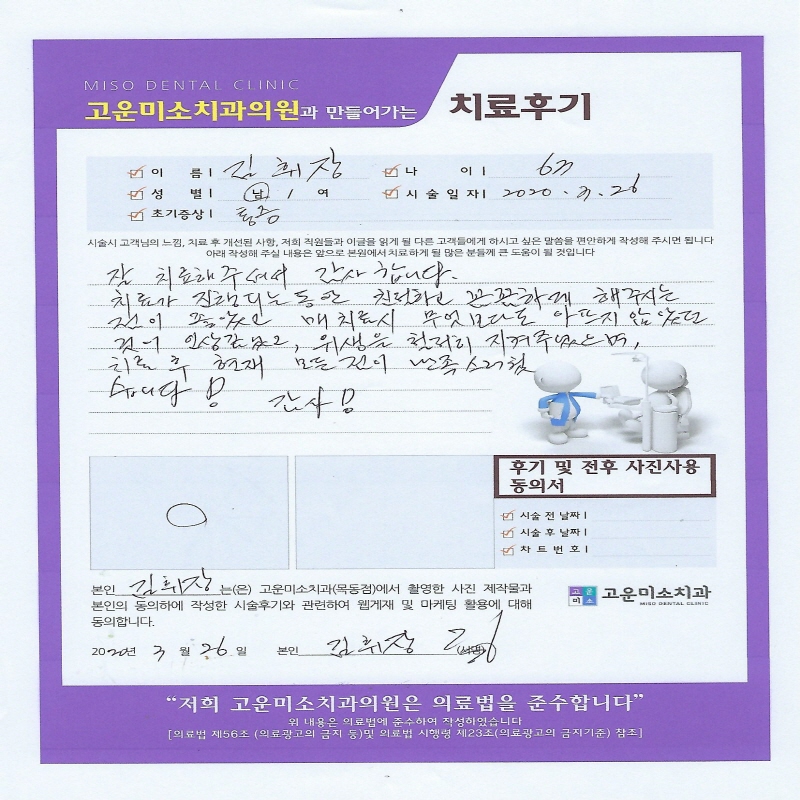 MISO DENTAL CLINIC
고운미소치과의원과 만들어가는 치료후기
이 름 김휘장 나 이 63
성 별 남 / 여 시술일자 2020. 3. 26
초기증상 통증
시술시 고객님의 느낌, 치료 후 개선된 사항, 저희 직원들과 이글을 읽게 될 다른 고객들에게 하시고 싶은 말씀을 편안하게 작성해 주시면 됩니다
아래 작성해 주실 내용은 앞으로 본원에서 치료하게 될 많은 분들께 큰 도움이 될 것입니다
잘 치료해주셔서 감사합니다.
치료가 진행되는 동안 친절하고 꼼꼼하게 해주시는
점이 좋았고 매 치료시 무엇보다도 아프지 않았던
것이 인상깊었고, 위생을 철저히 지켜주셨으며,
치료 후 현재 모든 점이 만족스러웠
습니다 감사
후기 및 전후 사진사용
동의서
시술 전 날짜
시술 후 날짜
차 트 번 호
본인 김휘장 는(은) 고운미소치과(목동점)에서 촬영한 사진 제작물과
본인의 동의하에 작성한 시술후기와 관련하여 웹게재 및 마케팅 활용에 대해
동의합니다.
고운미소치과
MISO DENTAL CLINIC
고운
미소
2020년 3 월 26 일 본인 김휘장 (서명)
“저희 고운미소치과의원은 의료법을 준수합니다”
위 내용은 의료법에 준수하여 작성하였습니다
[의료법 제56조 (의료광고의 금지 등)및 의료법 시행령 제23조(의료광고의 금지기준) 참조]